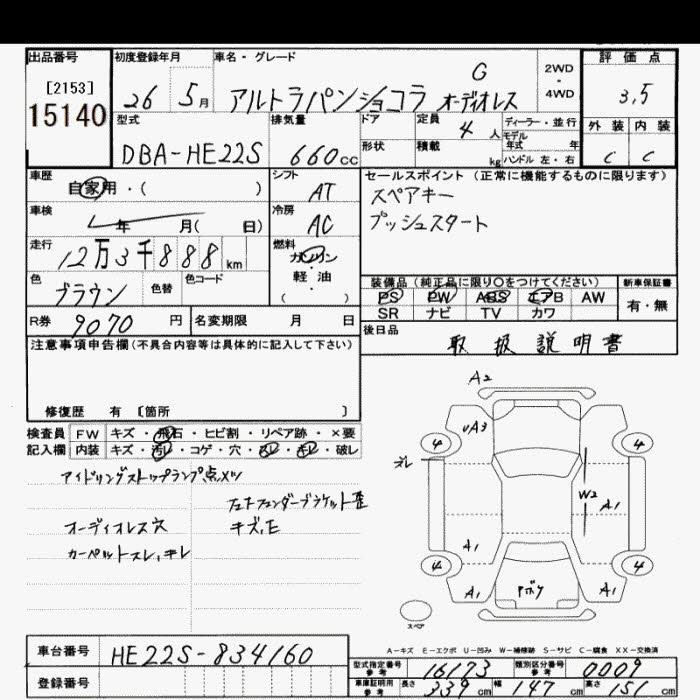 出品番号 初度登録年月 車名・グレード 評価点
[2153]
15140
26 5月 アルトラパンショコラ G オーディオレス 2WD・4WD 3,5
型式 排気量 ドア 定員 4人 ディーラー・並行 外装 内装
DBA-HE22S 660cc 形状 積載 kg モデル年式 年 ハンドル 左・右 C C
車歴 シフト セールスポイント (正常に機能するものに限ります)
自家用・( ) AT スペアキー
車検 冷房 プッシュスタート
年 月( 日) AC
走行 燃料
12万3千888km ガソリン
色 色替 色コード 軽・油 装備品(純正品に限り〇をつけてください) 新車保証書
ブラウン ( ) PS PW ABS エアB AW 有・無
SR ナビ TV カワ
R券 9070円 名変期限 月 日 後日品 取扱説明書
注意事項申告欄(不具合内容等は具体的に記入して下さい)
修復歴 有 [箇所 ]
検査員 FW キズ・飛石・ヒビ割・リペア跡・×要
記入欄 内装 キズ・汚レ・コゲ・穴・スレ・キレ・破レ
アイドリングストップランプ点メツ
オーディオレス穴
カーペットスレ,キレ
キズ,E
A2
UA3
4 4
ズレ
W2
A1
A1
4 4
A1 A1
スペア
A-キズ E-エクボ U-凹み W-補修跡 S-サビ C-腐食 XX-交換済
車台番号 HE22S-834160
登録番号
型式指定番号 参考 16173 類別区分番号 参考 0009
車庫証明用 参考 長さ 339cm 幅 147cm 高さ 151cm